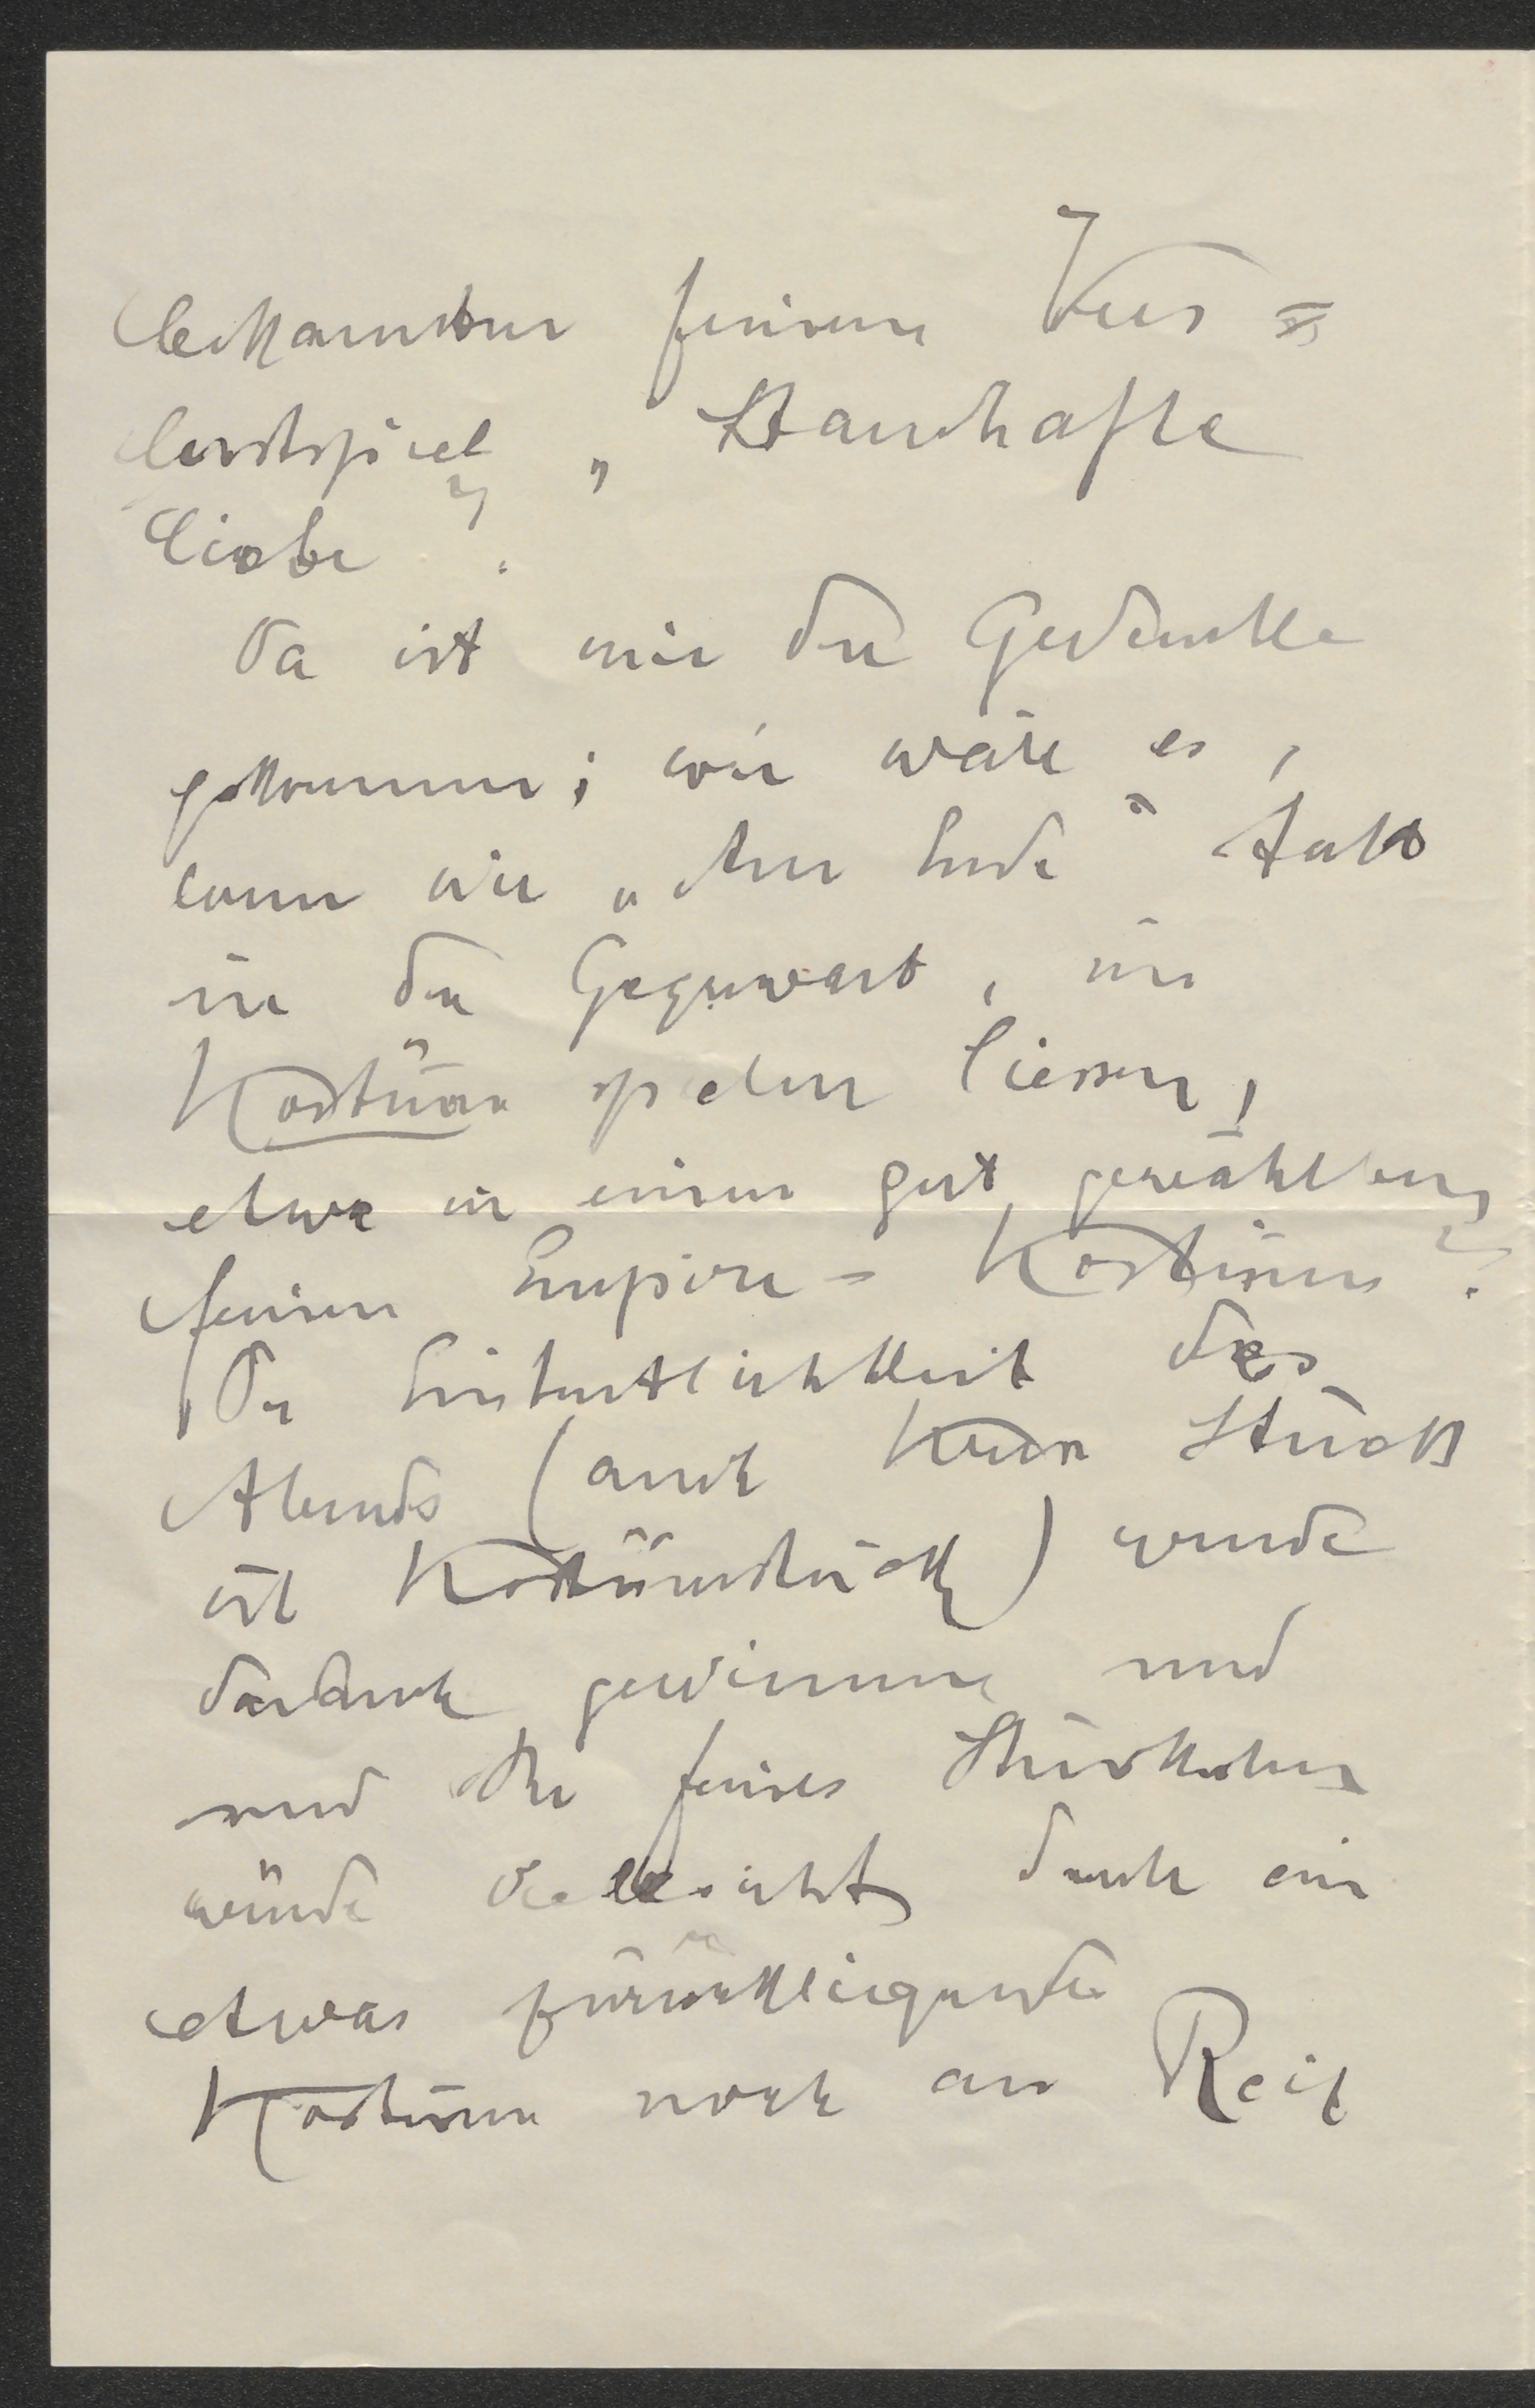 bekannten feinen Vers=
lustspiel „Standhafte
Liebe“.
Da ist mir der Gedanke
gekommen; wie wäre es,
wenn wir „Am Ende“ statt
in der Gegenwart, im
Kostüm spielen liessen,
etwa in einem gut gewählten,
feinen Empire-Kostüm?
Die Einheitlichkeit des
Abends (auch Ihr Stück
ist Kostümstück) würde
dadurch gewinnen und
und Ihr feines Stückchen
würde vielleicht durch ein
etwas zurückliegendes
Kostüm noch an Reiz